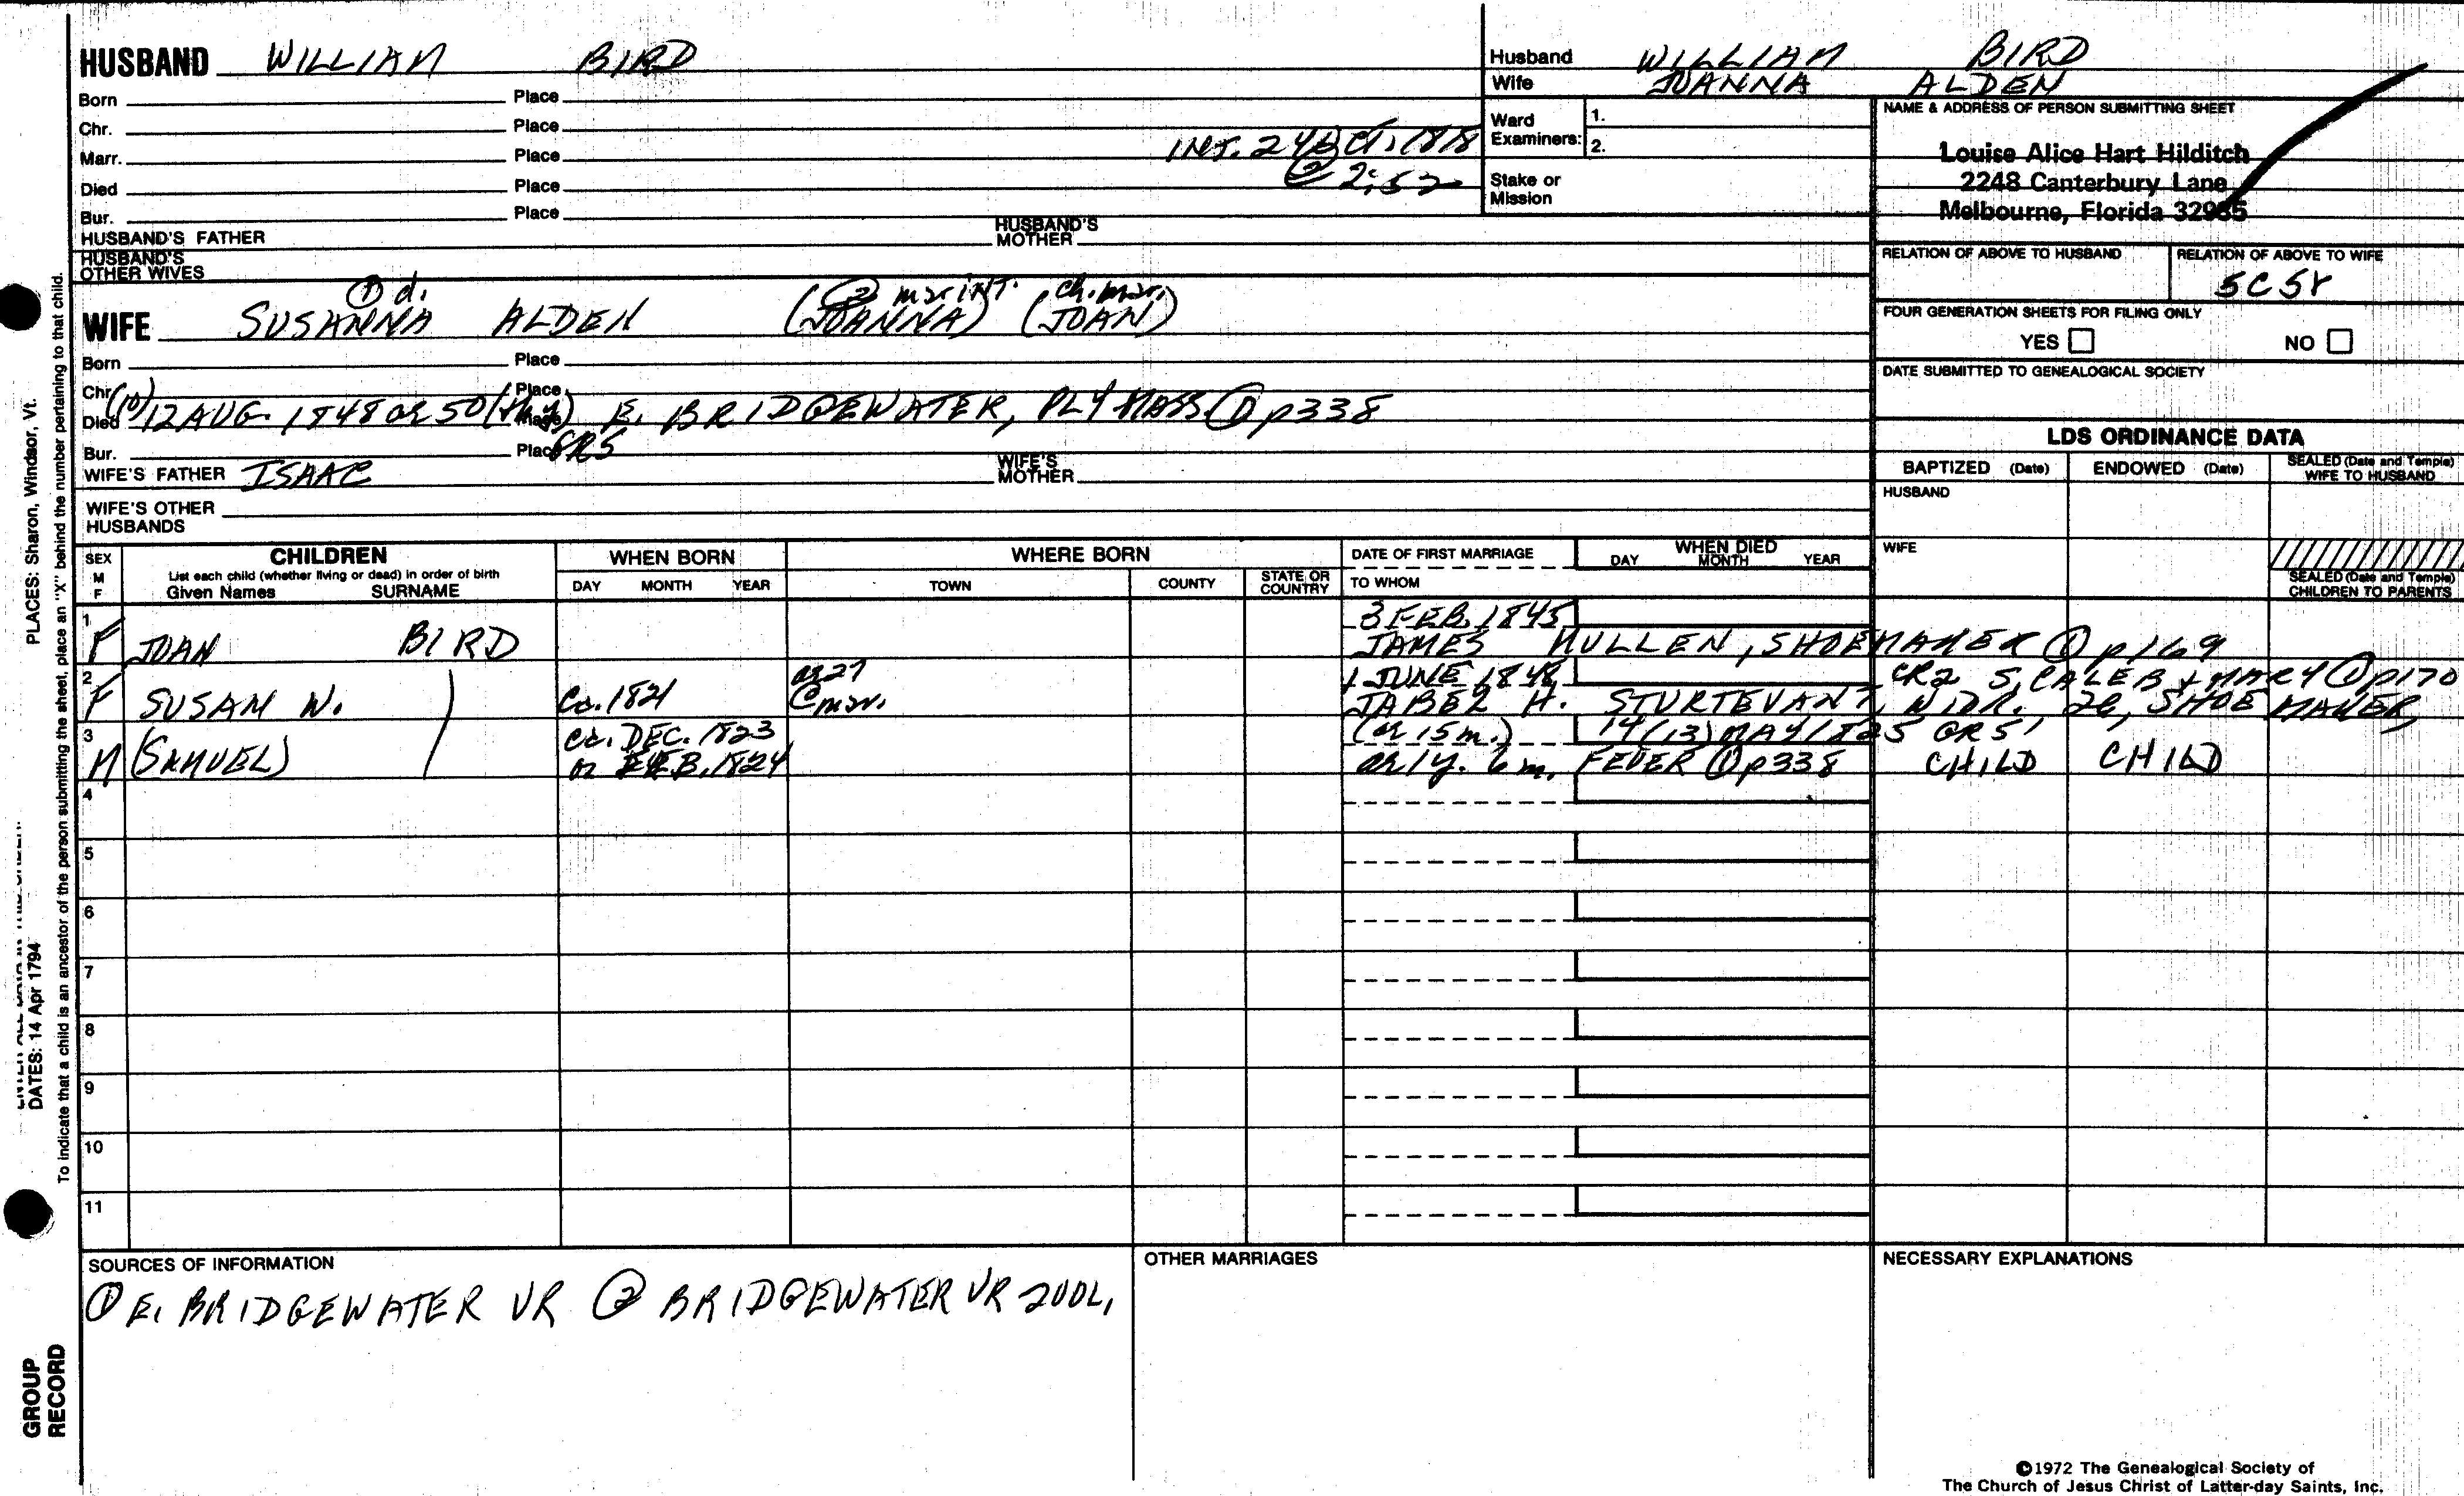 HUSBAND WILLIAM BIRD
Born Place
Chr. Place
Marr. Place INT. 24 OCT. 1818
② 2:52
Died Place
Bur. Place
HUSBAND'S FATHER HUSBAND'S MOTHER
HUSBAND'S OTHER WIVES
① d. ② mar INT. ch. mar.
WIFE SUSANNA ALDEN (JOANNA) (JOAN)
Born Place
Chr. Place
Died (10) 12 AUG. 1848 or 50 Place E. BRIDGEWATER, PLY MASS. ① p338
Bur. Place GR5
WIFE'S FATHER ISAAC WIFE'S MOTHER
WIFE'S OTHER HUSBANDS
Husband WILLIAM BIRD
Wife JOANNA ALDEN
Ward Examiners: 1.
2.
Stake or Mission
NAME & ADDRESS OF PERSON SUBMITTING SHEET
Louise Alice Hart Hilditch
2248 Canterbury Lane
Melbourne, Florida 32935
RELATION OF ABOVE TO HUSBAND RELATION OF ABOVE TO WIFE
5C5r
FOUR GENERATION SHEETS FOR FILING ONLY
YES NO
DATE SUBMITTED TO GENEALOGICAL SOCIETY
LDS ORDINANCE DATA
BAPTIZED (Date) ENDOWED (Date) SEALED (Date and Temple) WIFE TO HUSBAND
HUSBAND
WIFE
SEALED (Date and Temple) CHILDREN TO PARENTS
SEX M F
CHILDREN
List each child (whether living or dead) in order of birth
Given Names SURNAME
WHEN BORN
DAY MONTH YEAR
WHERE BORN
TOWN COUNTY STATE OR COUNTRY
DATE OF FIRST MARRIAGE
TO WHOM
WHEN DIED
DAY MONTH YEAR
1 3 FEB. 1845
F JOAN BIRD JAMES MULLEN, SHOEMAKER ① p169
2 ae 27 1 JUNE 1848 CR2 S. CALEB & MARY ① p170
F SUSAN W. Ca. 1821 @ mar. JABEZ H. STURTEVANT, WIDR. 26, SHOEMAKER,
3 ca. DEC. 1823 (ae 15 m.) 14 (13) MAY 1825 GR5
M (SAMUEL) or FEB. 1824 ae 1 y. 6 m. FEVER ① p338 CHILD CHILD
4
5
6
7
8
9
10
11
SOURCES OF INFORMATION
① E. BRIDGEWATER VR ② BRIDGEWATER VR 2VOL,
OTHER MARRIAGES
NECESSARY EXPLANATIONS
©1972 The Genealogical Society of
The Church of Jesus Christ of Latter-day Saints, Inc.
PLACES: Sharon, Windsor, Vt.
DATES: 14 Apr 1794
To indicate that a child is an ancestor of the person submitting the sheet, place an "X" behind the number pertaining to that child.
GROUP
RECORD